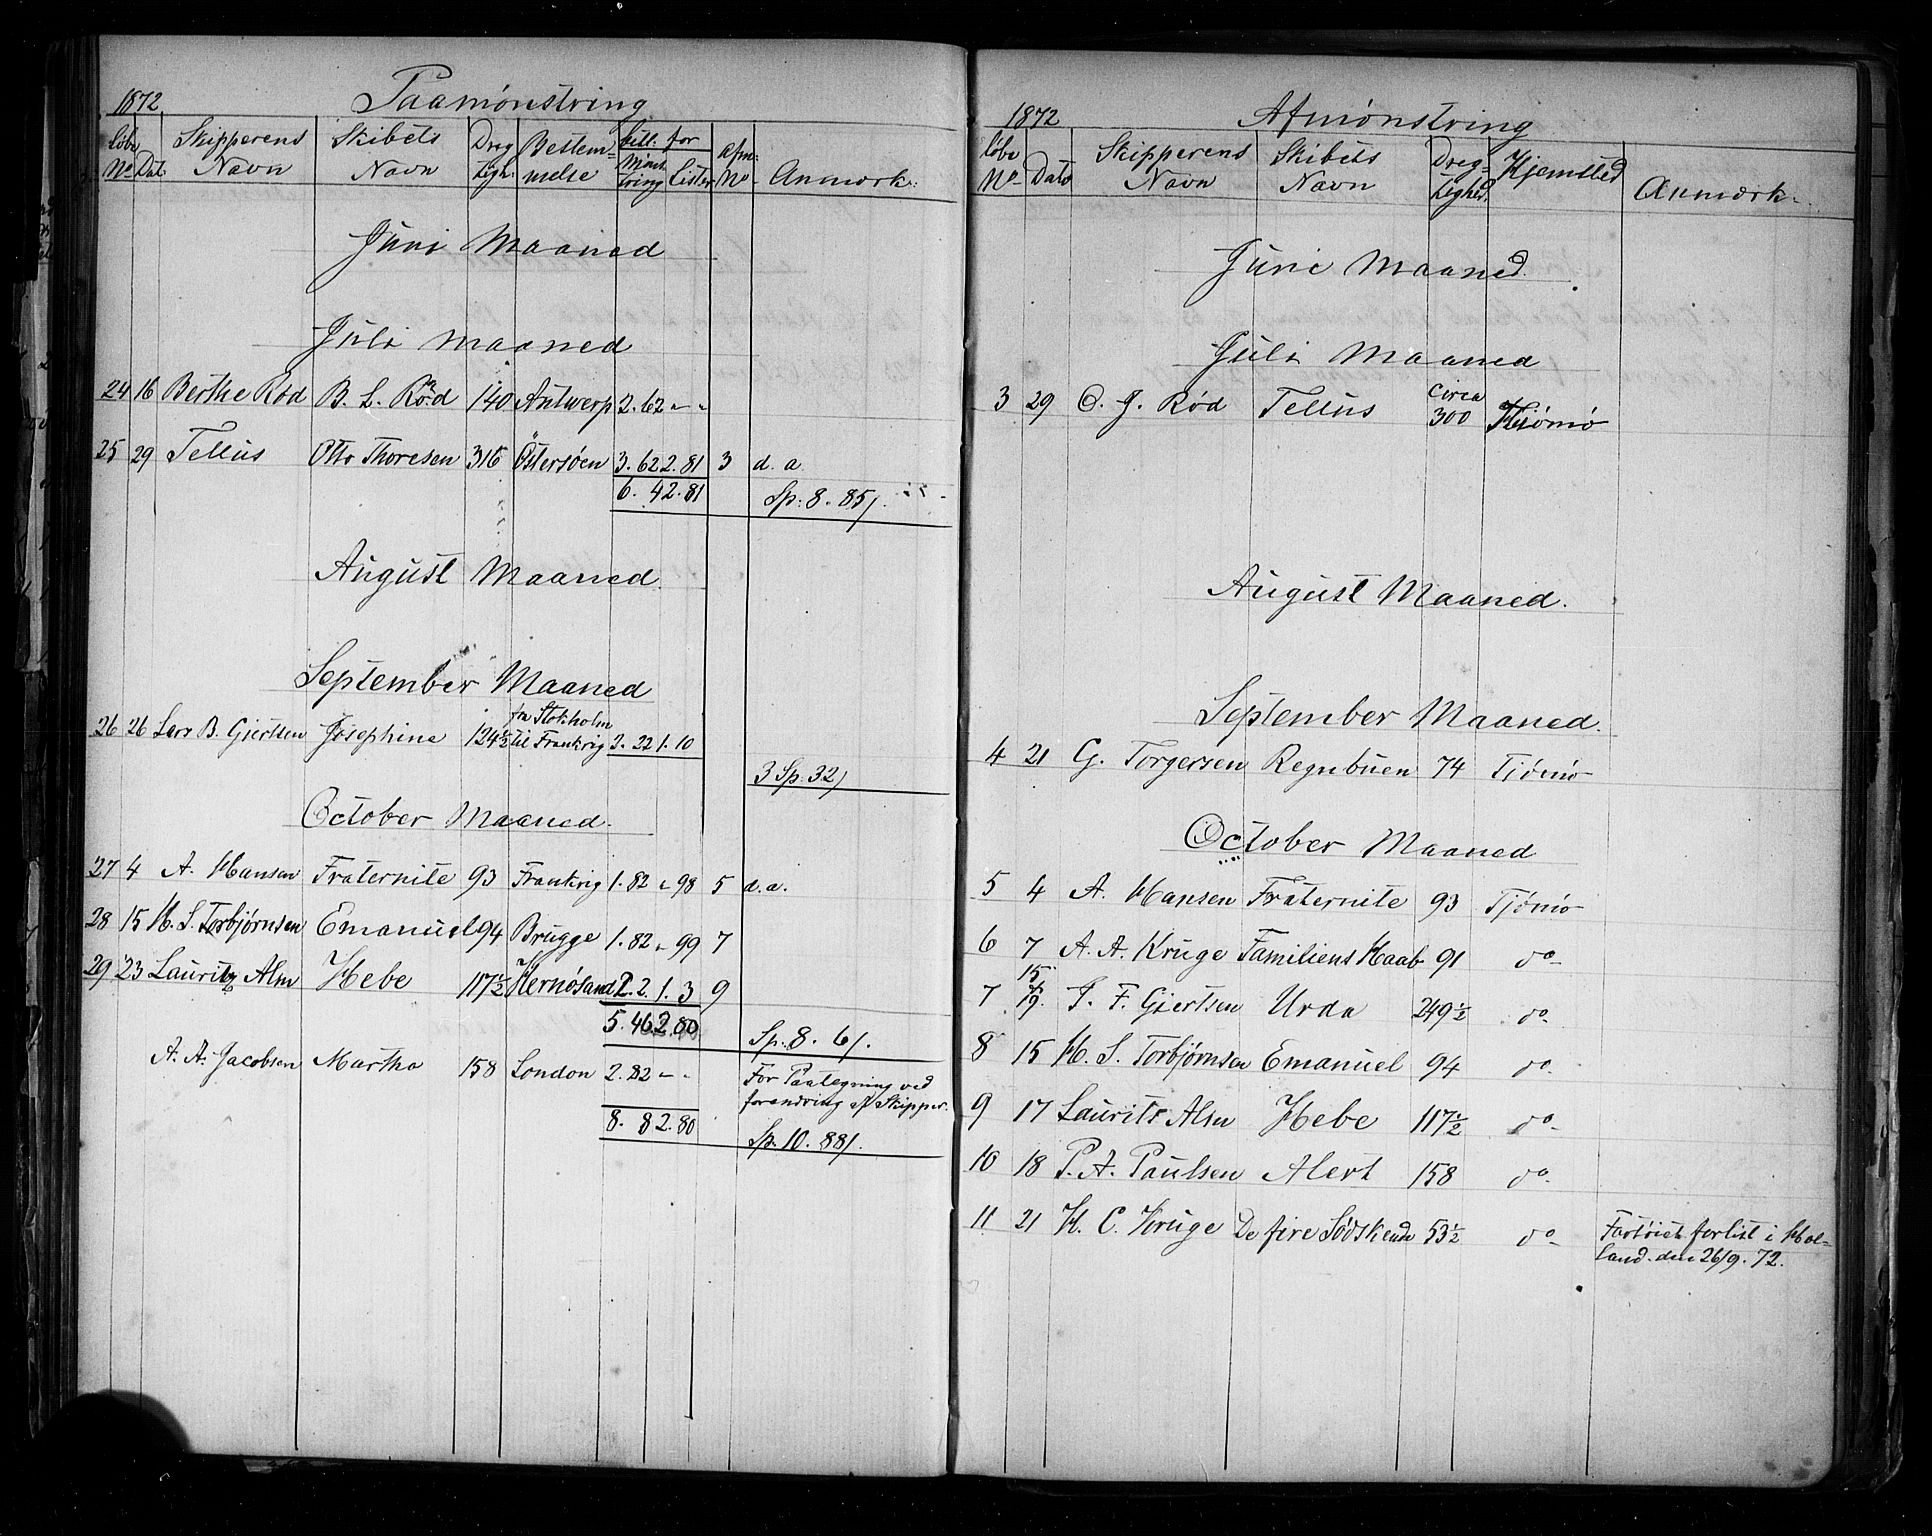 1872 Paamønstring
Løbe No Dat. Skipperens Navn Skibets Navn Dræg- tigh. Bestem- melse bill. for Mønst- tring Lister Afm. No Anmærk.
Juni Maaned
Juli Maaned
24 16 Berthe Rød B. L. Rød 140 Antwerp 2. 62 " "
25 29 Tellus Otto Thoresen 316 Östersøen 3. 62 2. 81 3 d. a.
6. 4 2. 81 Sp: 8. 85/.
August Maaned
September Maaned
26 26 Lars B. Gjertsen Josephine 124½ fra Stokholm til Frankrig 2. 22 1. 10
3 Sp. 32/
October Maaned.
27 4 A. Hansen Fraternite 93 Frankrig 1. 82 " 98 5 d. a.
28 15 H. S. Torbjørnsen Emanuel 94 Brugge 1. 82 " 99 7
29 23 Lauritz Alm Hebe 117½ Hernøsand 2. 2. 1. 3 9
5. 46 2. 80 Sp. 8. 6/.
A. A. Jacobsen Martha 158 London 2. 82 " " For Paategning ved forandring af Skipper.
8. 8 2. 80 Sp. 10. 88/.
1872 Afmønstring
Løbe No Dato Skipperens Navn Skibets Navn Dræg- tighed. Hjemsted Anmærk.
Juni Maaned.
Juli Maaned
3 29 O. J. Rød Tellus circa 300 Tjømø
August Maaned.
September Maaned.
4 21 G. Torgersen Regnbuen 74 Tjømø
October Maaned
5 4 A. Hansen Fraternite 93 Tjømø
6 7 A. A. Kruge Familiens Haab 91 do
7 15 & 19. F. Gjertsen Urda 249½ do
8 15 H. S. Torbjørnsen Emanuel 94 do
9 17 Laurits Alm Hebe 117½ do
10 18 P. A. Paulsen Alert 158 do
11 21 H. C. Kruge De fire Sødskende 53½ do Fartøiet forlist i Hol-
land. den 26/9. 72.